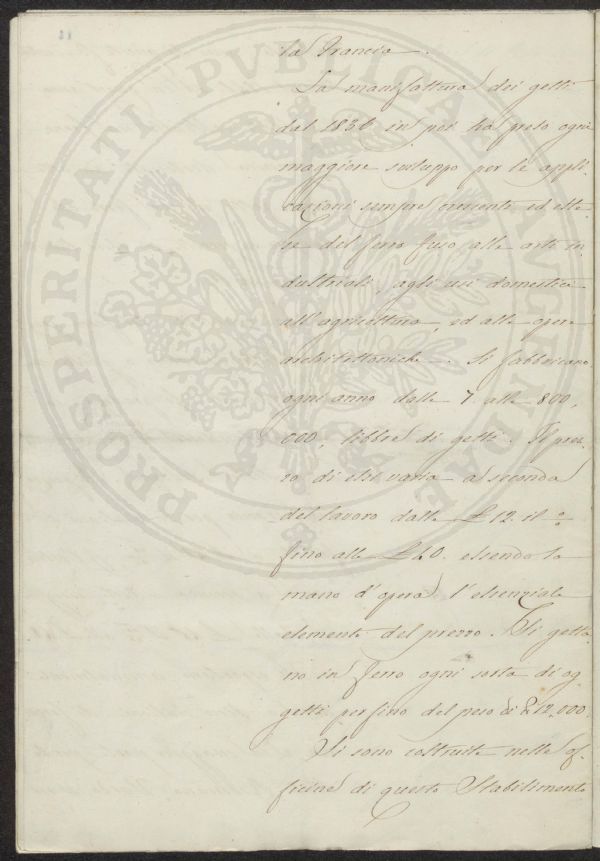 21
PROSPERITATI PVBLICAE AVGVNDAE
la Francia.
La manifattura dei getti
dal 1836 in poi ha preso ogni
maggiore sviluppo per le appli
cazioni sempre crescenti ed este
se del ferro fuso alle arti in
dustriali, agli usi domestici
all'agricoltura, ed alle opere
architettoniche. Si fabbricano
ogni anno dalle 7. alle 800,
000, libbre di getti. Il prez
zo di essi varia a seconda
del lavoro dalle £ 12. il %
fino alle £ 40. essendo la
mano d'opera l'essenziale
elemento del prezzo. Si getta
no in ferro ogni sorta di og
getti perfino del peso di 12,000.
Si sono costruite nelle of
ficine di questo Stabilimento